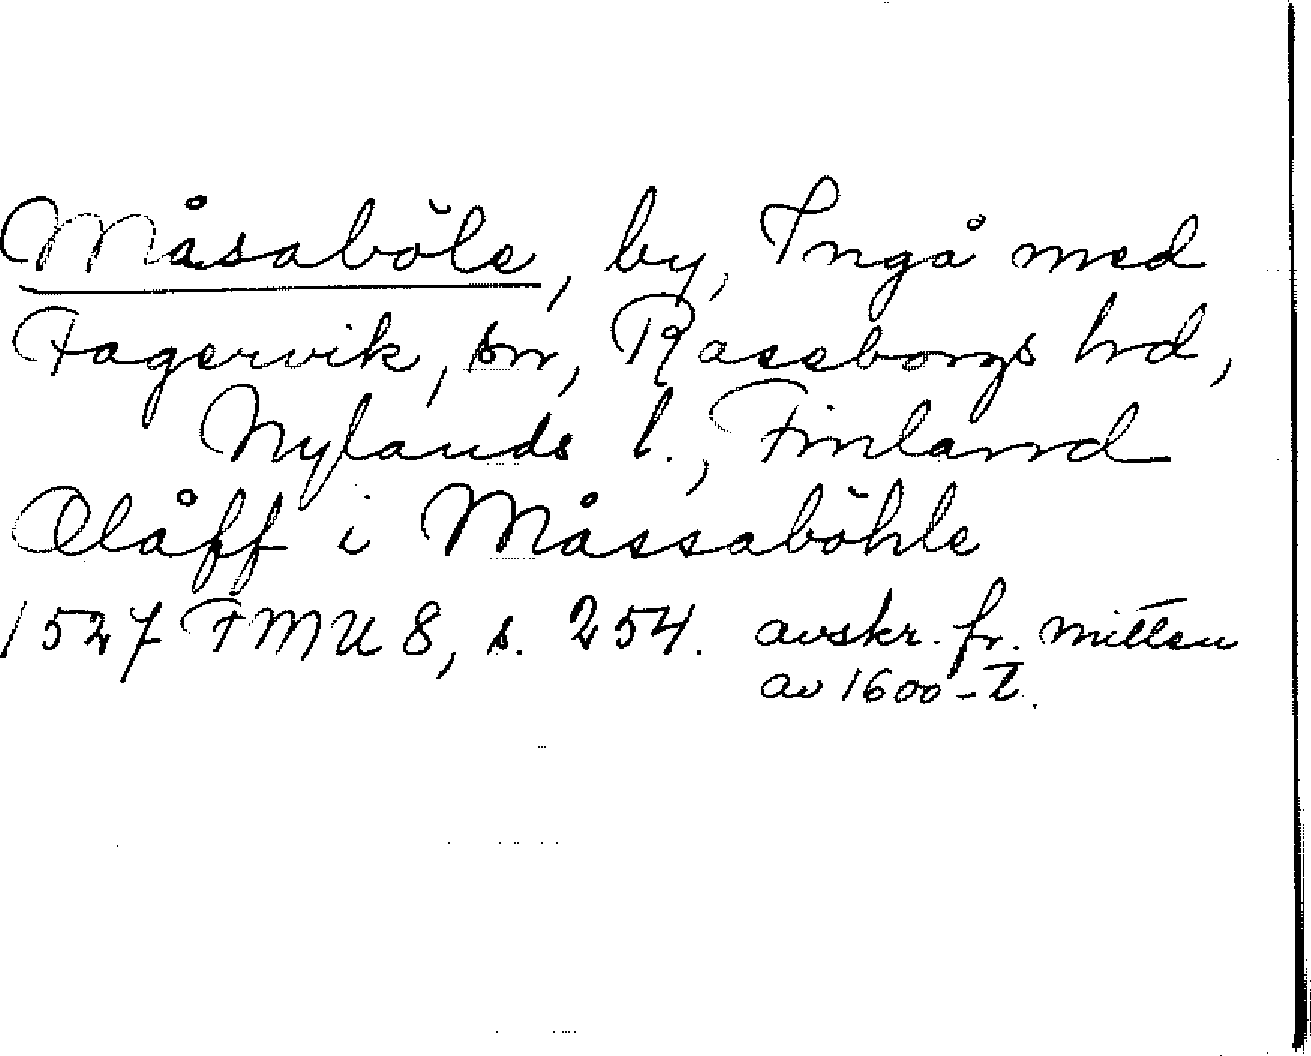 Måsaböle, by, Ingå med
Fagervik, sn, Raseborgs hd,
Nylands l., Finland
Olåff i Måssaböhle
1527 FMU 8, s. 254. avskr. fr. mitten
av 1600-t.